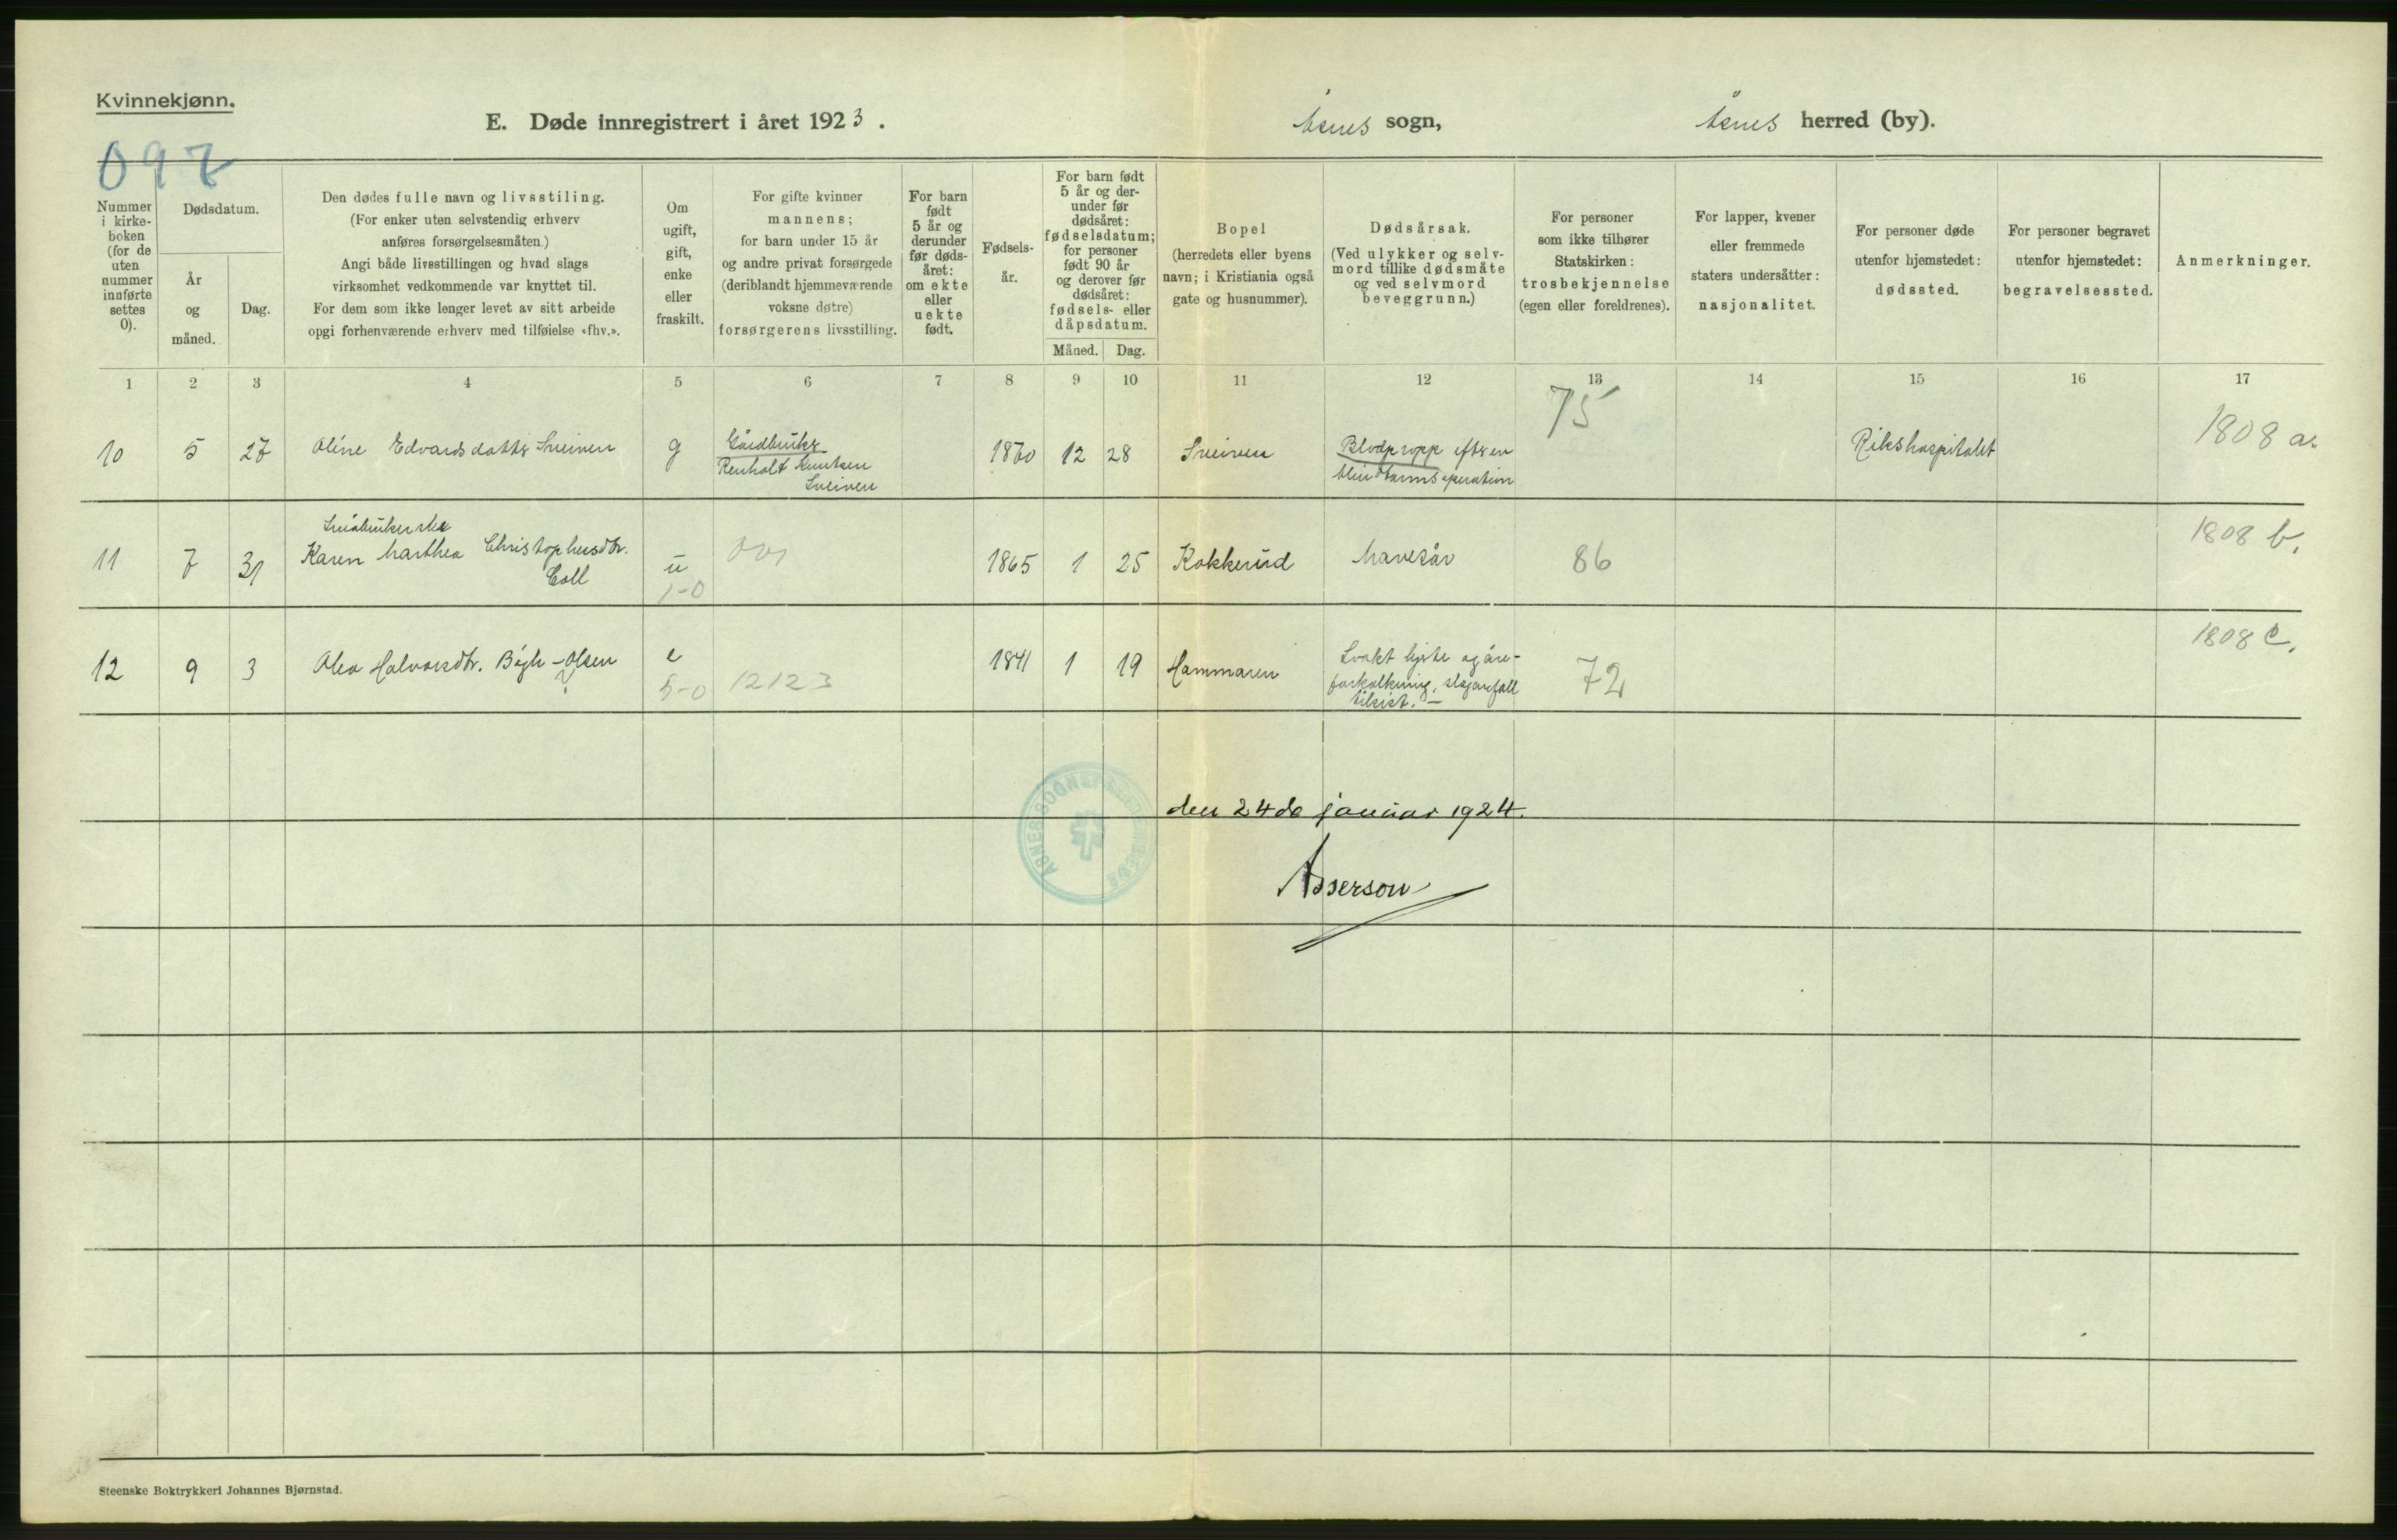 Kvinnekjønn.
E. Døde innregistrert i året 1923.
Åsnes sogn,
Åsnes herred (by).
097
Nummer
i kirke-
boken
(for de
uten
nummer
innførte
settes
0).
Dødsdatum.
År
og
måned.
Dag.
Den dødes fulle navn og livsstiling.
(For enker uten selvstendig erhverv
anføres forsørgelsesmåten.)
Angi både livsstillingen og hvad slags
virksomhet vedkommende var knyttet til.
For dem som ikke lenger levet av sitt arbeide
opgi forhenværende erhverv med tilføielse «fhv.».
Om
ugift,
gift,
enke
eller
fraskilt.
For gifte kvinner
mannens;
for barn under 15 år
og andre privat forsørgede
(deriblandt hjemmeværende
voksne døtre)
forsørgerens livsstilling.
For barn
født
5 år og
derunder
før døds-
året:
om ekte
eller
uekte
født.
Fødsels-
år.
For barn født
5 år og der-
under før
dødsåret:
fødselsdatum;
for personer
født 90 år
og derover før
dødsåret:
fødsels- eller
dåpsdatum.
Måned.
Dag.
Bopel
(herredets eller byens
navn; i Kristiania også
gate og husnummer).
Dødsårsak.
(Ved ulykker og selv-
mord tillike dødsmåte
og ved selvmord
beveggrunn.)
For personer
som ikke tilhører
Statskirken:
trosbekjennelse
(egen eller foreldrenes).
For lapper, kvener
eller fremmede
staters undersåtter:
nasjonalitet.
For personer døde
utenfor hjemstedet:
dødssted.
For personer begravet
utenfor hjemstedet:
begravelsessted.
Anmerkninger.
1 2 3 4 5 6 7 8 9 10 11 12 13 14 15 16 17
10 5 27 Oline Edvardsdatter Sveiven g
Gårdbruker
Renholt Knutsen
Sveiven
1870 12 28 Sveiven
Blodpropp efter en
blindtarmsoperation
75
Rikshospitalet
1808 a.
11 7 31
Småbrukerske
Karen Marthea Christophersdtr.
Coll
u
1-0
001
1865 1 25 Kokkerud Mavesår 86
1808 b.
12 9 3 Olea Halvorsdtr. Bøgh-Olsen
e
5-0
12123
1841 1 19 Hammaren
Svakt hjerte og åre-
forkalkning, slaganfall
tilsist. –
72
1808 c.
den 24de januar 1924.
Asserson
Steenske Boktrykkeri Johannes Bjørnstad.